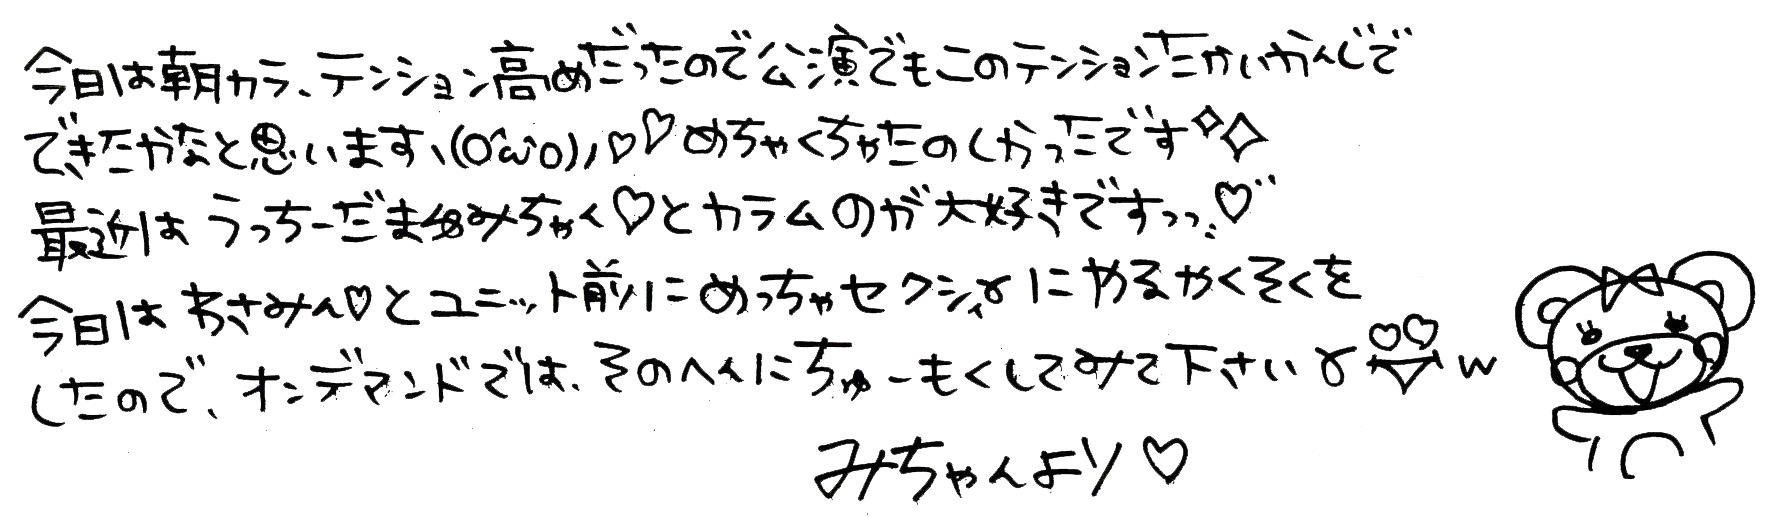 今日は朝カラ、テンション高めだったので公演でもこのテンションたかいかんじで
できたかなと思います、(O^ω^O)ノ♡♡めちゃくちゃたのしかったです✧✧
最近は うっちーだまゆみちゃん♡とカラムのが大好きですっっ♡
今日は あさみん♡とユニット前Mにめっちゃセクスィーにやるやくそくを
したので、オンデマンドでは、そのへんにちゅーもくしてみて下さいɤ w
みちゃんより♡